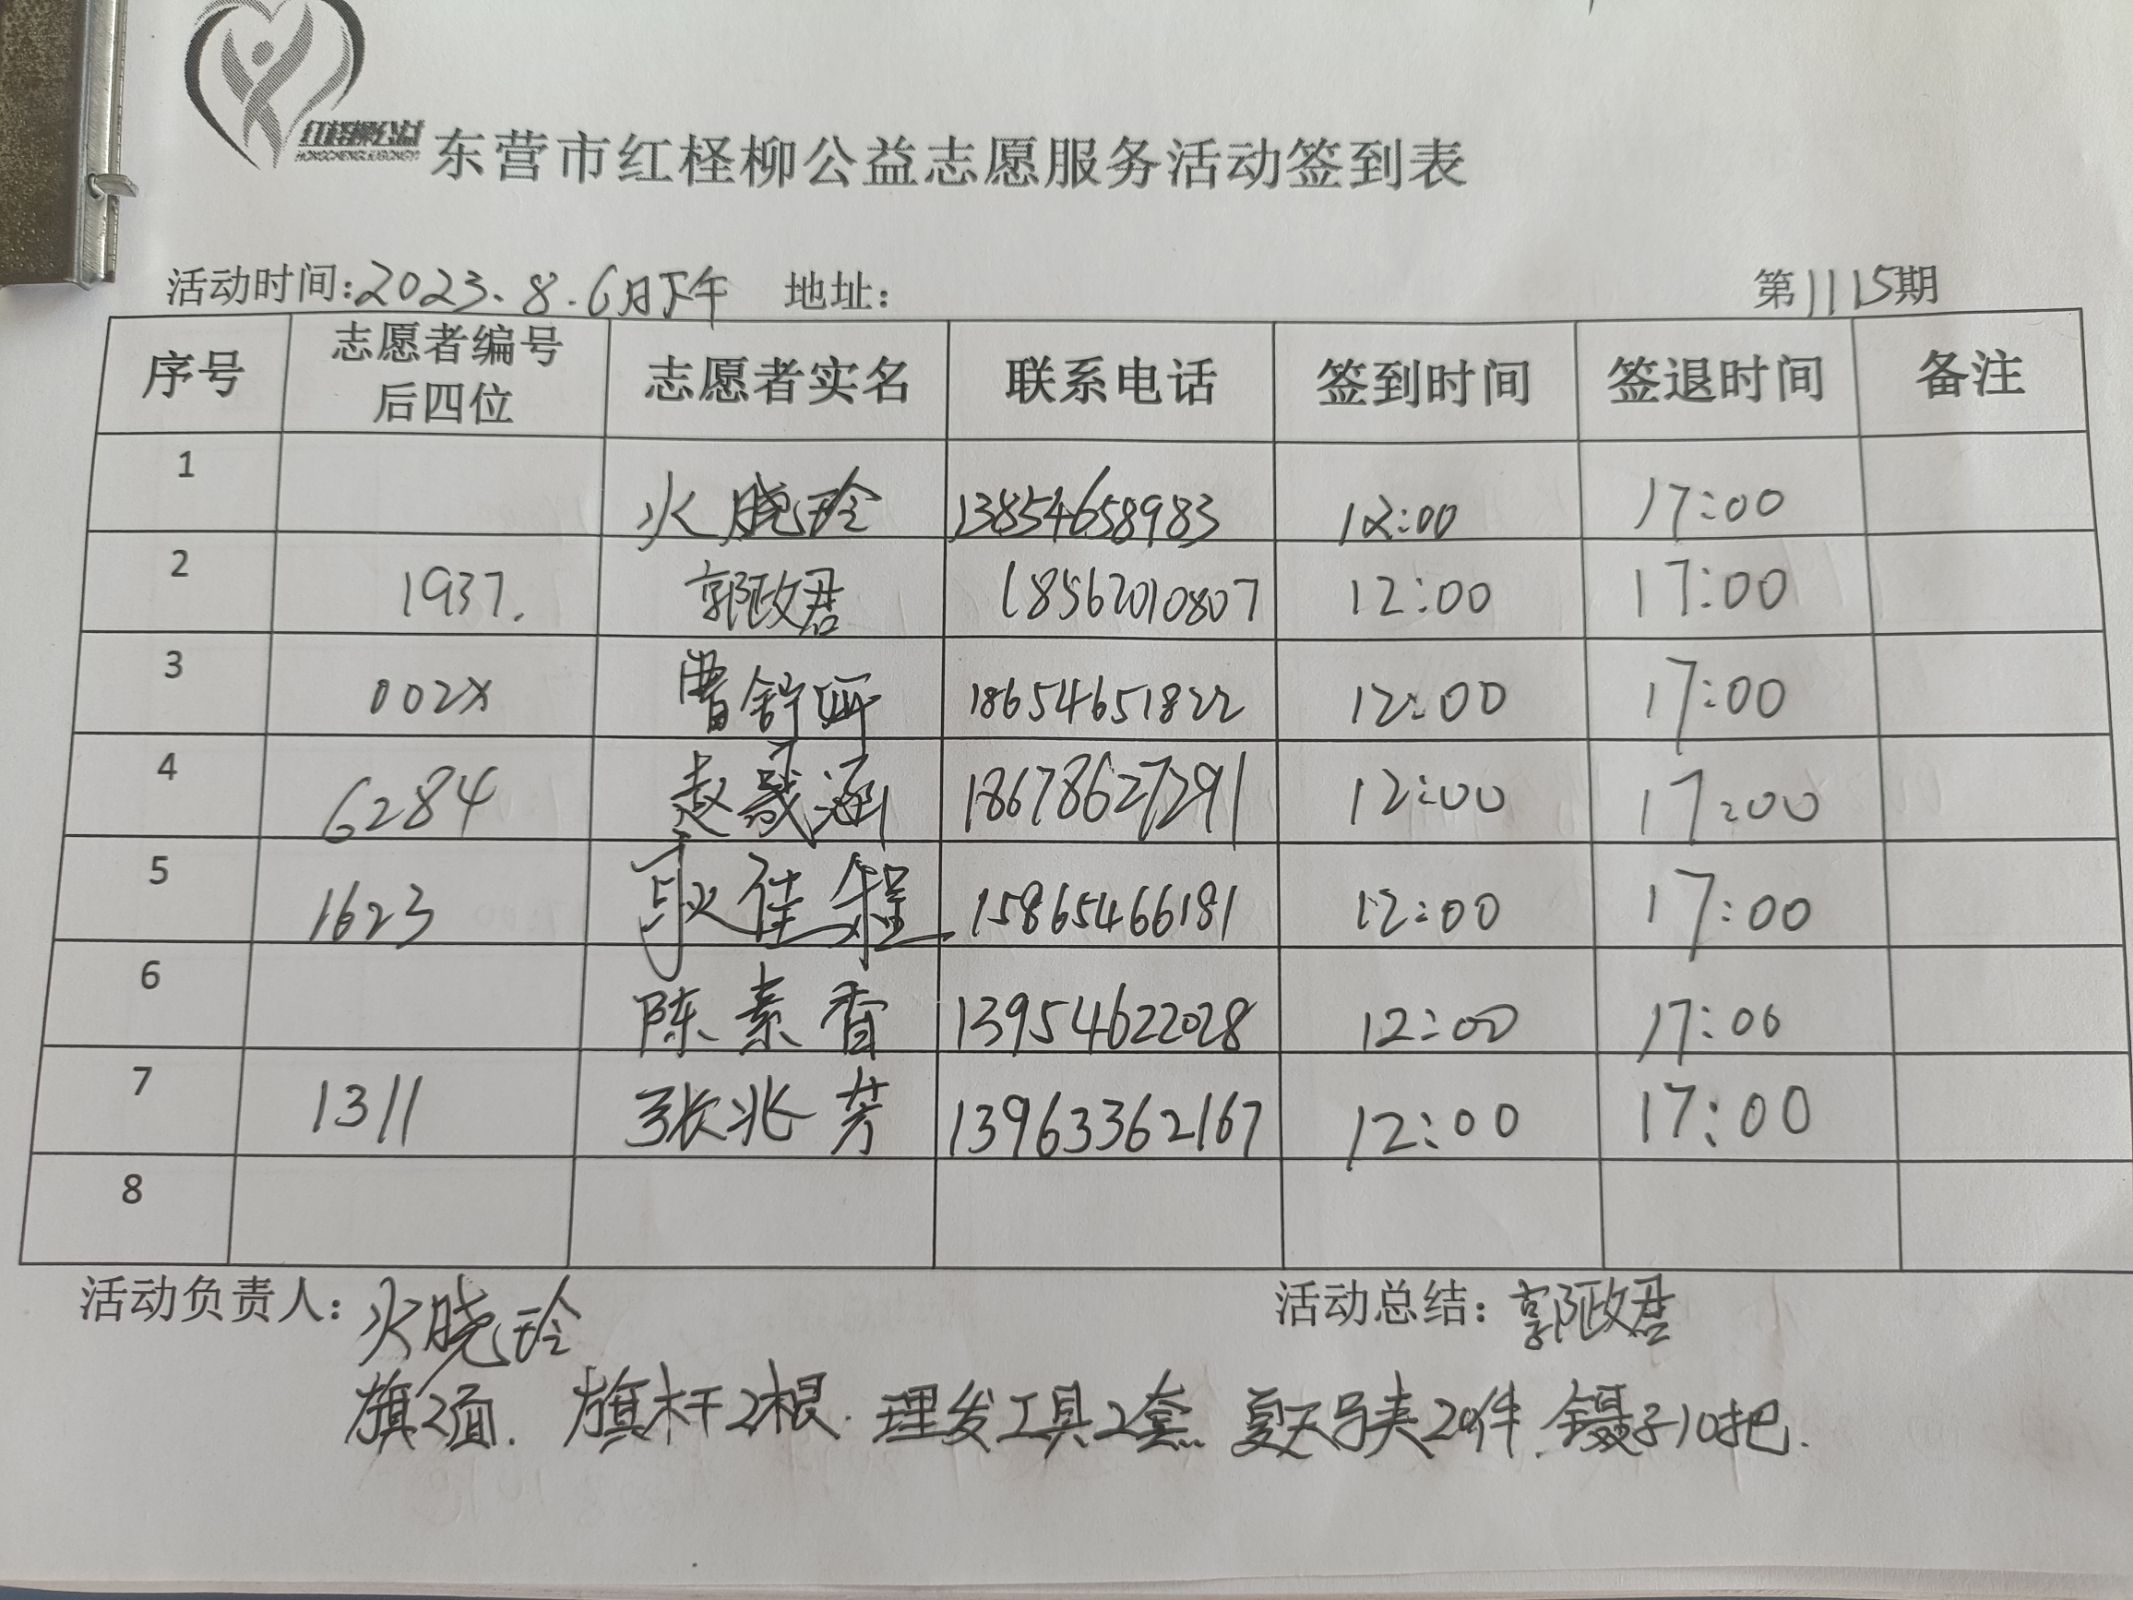 红柽柳公益
HONGCHENGLIUGONGYI
东营市红柽柳公益志愿服务活动签到表
活动时间:2023.8.6日下午 地址: 第1115期
序号 志愿者编号后四位 志愿者实名 联系电话 签到时间 签退时间 备注
1 火晓玲 13854658983 12:00 17:00
2 1937. 郭政君 18562010807 12:00 17:00
3 002X 曹舒 18654651822 12:00 17:00
4 6284 赵晟涵 18678627291 12:00 17:00
5 1623 耿佳程 15865466181 12:00 17:00
6 陈素香 13954622028 12:00 17:00
7 1311 张兆芳 13963362167 12:00 17:00
8
活动负责人: 火晓玲 活动总结: 郭政君
旗2面. 旗杆2根. 理发工具2套. 夏天马夹20件 镊子10把.